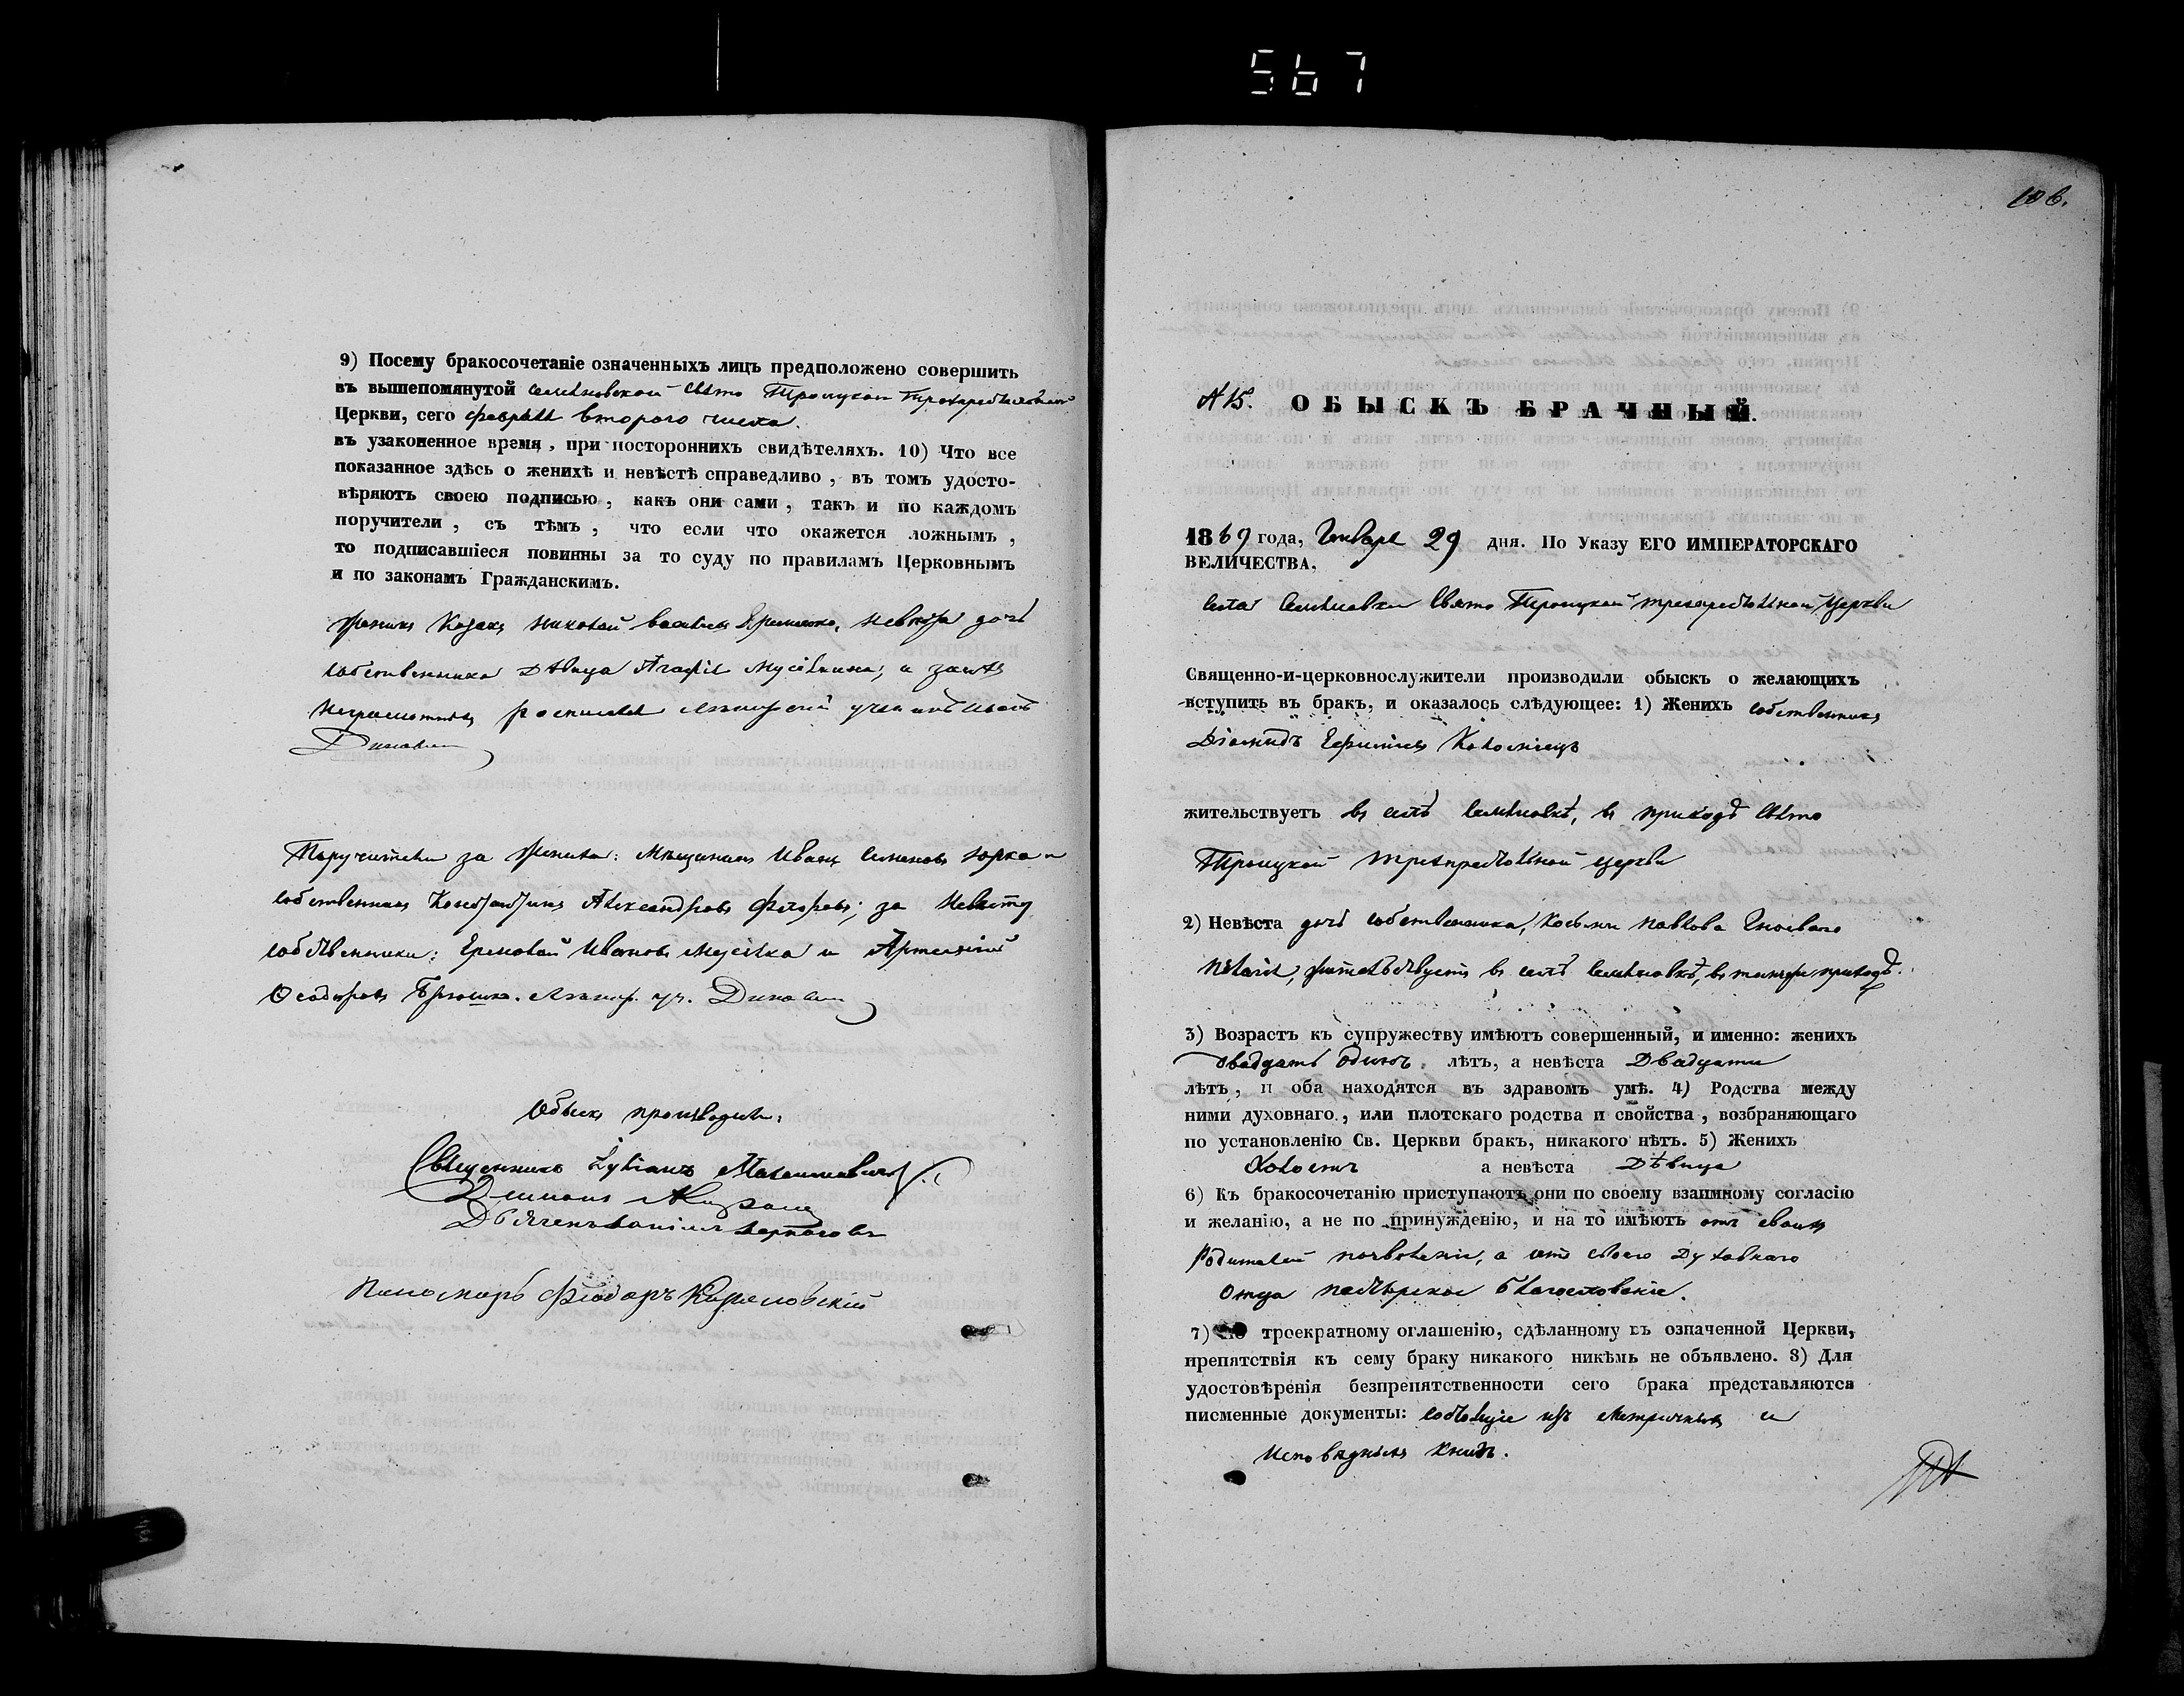 567
9) Посему бракосочетаніе означенныхъ лицъ предположено совершить
въ вышепомянутой Семеновской Свято Троицкой Трехпрестольной
Церкви, сего февраля второго числа.
въ узаконенное время, при постороннихъ свидѣтеляхъ. 10) Что все
показанное здѣсь о женихѣ и невѣстѣ справедливо, въ томъ удосто-
вѣряютъ своею подписью, какъ они сами, такъ и по каждомъ
поручители, съ тѣмъ, что если что окажется ложнымъ,
то подписавшіеся повинны за то суду по правиламъ Церковнымъ
и по законамъ Гражданскимъ.
Женихъ Козакъ Николай Васильевъ невѣста дочь
собственника дѣвица Агафія и за ихъ
неграмотныхъ росписался ученикъ Иванъ
Поручители за жениха: Мѣщанинъ Иванъ Семеновъ Юрко и
собственникъ Константинъ Александровъ за невѣсту
собственники: Ермолай Ивановъ и Артемій
Ѳеодоровъ
Обыскъ производили:
Священникъ Максимовичъ
Пономарь Ѳеодоръ
106.
№ 15. ОБЫСКЪ БРАЧНЫЙ.
1869 года, Января 29 дня. По Указу ЕГО ИМПЕРАТОРСКАГО
ВЕЛИЧЕСТВА,
села Семеновки Свято Троицкой трехпрестольной Церкви
Священно-и-церковнослужители производили обыскъ о желающихъ
вступить въ бракъ, и оказалось слѣдующее: 1) Женихъ собственникъ
Діомидъ Ефимовъ Коломіецъ
жительствуетъ въ селѣ Семеновкѣ, въ приходѣ Свято
Троицкой трехпрестольной церкви
2) Невѣста дочь собственника, Косьмы Павлова Гноеваго
Пелагія, жительствуетъ въ селѣ Семеновкѣ, въ томъ же приходѣ.
3) Возрастъ къ супружеству имѣютъ совершенный, и именно: женихъ
двадцать одинъ лѣтъ, а невѣста Двадцати
лѣтъ, и оба находятся въ здравомъ умѣ. 4) Родства между
ними духовнаго, или плотскаго родства и свойства, возбраняющаго
по установленію Св. Церкви бракъ, никакого нѣтъ. 5) Женихъ
Холостъ а невѣста Дѣвица
6) Къ бракосочетанію приступаютъ они по своему взаимному согласію
и желанію, а не по принужденію, и на то имѣютъ отъ своихъ
Родителей позволеніе, а отъ своего Духовнаго
Отца пастырское благословеніе.
7) По троекратному оглашенію, сдѣланному въ означенной Церкви,
препятствія къ сему браку никакого никѣмъ не объявлено. 8) Для
удостовѣренія безпрепятственности сего брака представляются
писменные документы: состоящіе изъ метричныхъ и
исповѣдныхъ книгъ.